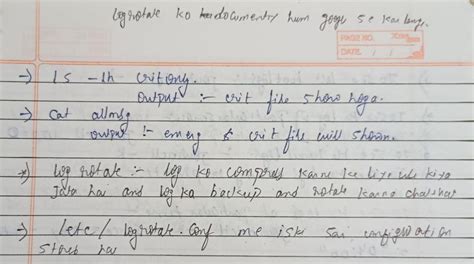 logrotate ko documentry hum google se karlenge.
PAGE NO.
DATE / /
-> ls -lh critonly.
output :- crit file show hoga.
-> cat allmsg
output :- emerg & crit file will shown.
*) log rotate :- log ko compress karne ke liye use kiya
jata hai and log ka backup and rotate karna chahkar
-> /etc/logrotate.conf me iski sai configuration
store hai